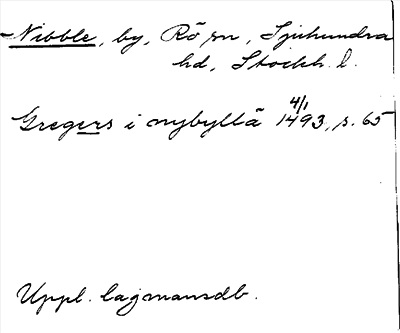 Nibble, by, Rö sn, Sjuhundra
hd, Stockh. l.
Gregers i nybyllä 4/1 1493, s. 65
Uppl. lagmansdb.